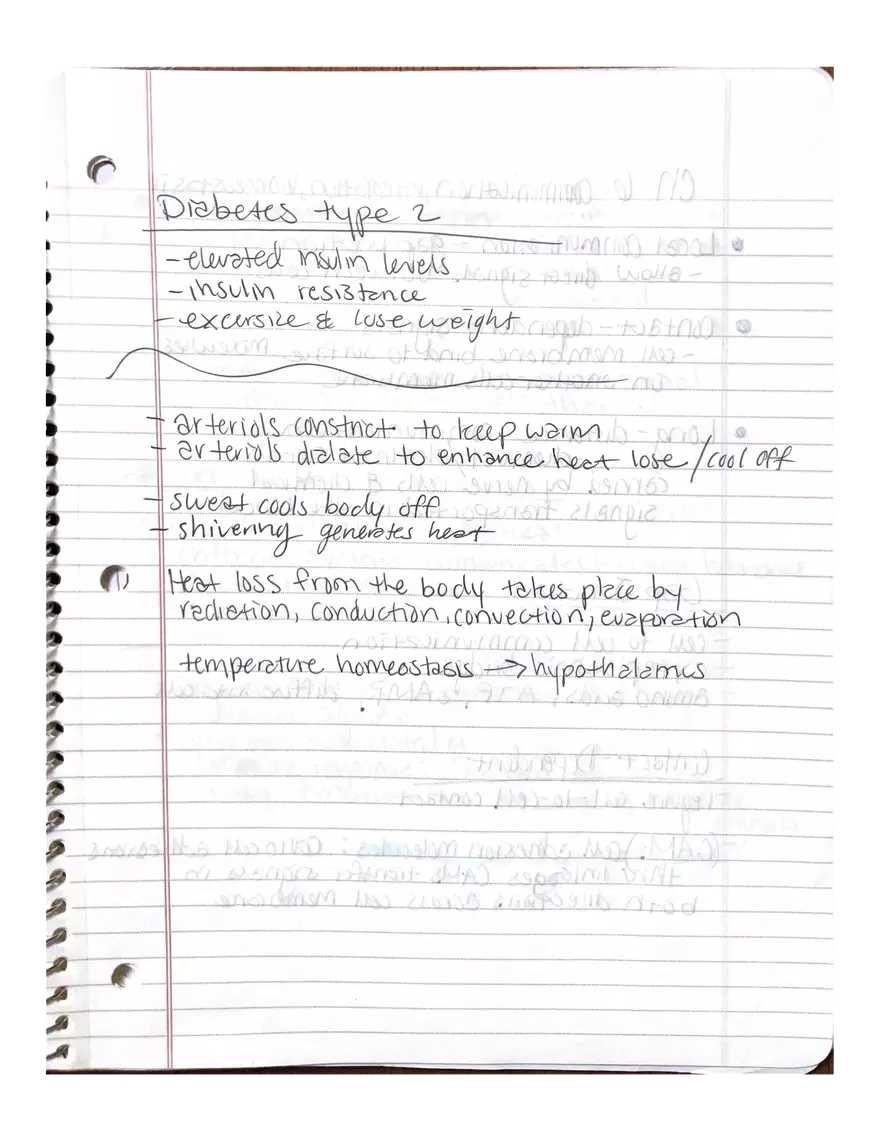 Diabetes type 2
- elevated insulin levels
- insulin resistance
- excersize & lose weight
- arteriols constrict to keep warm
- arteriols dialate to enhance heat lose / cool off
- sweat cools body off
- shivering generates heat
1) Heat loss from the body takes place by
radiation, conduction, convection, evaporation
temperature homeostasis → hypothalamus